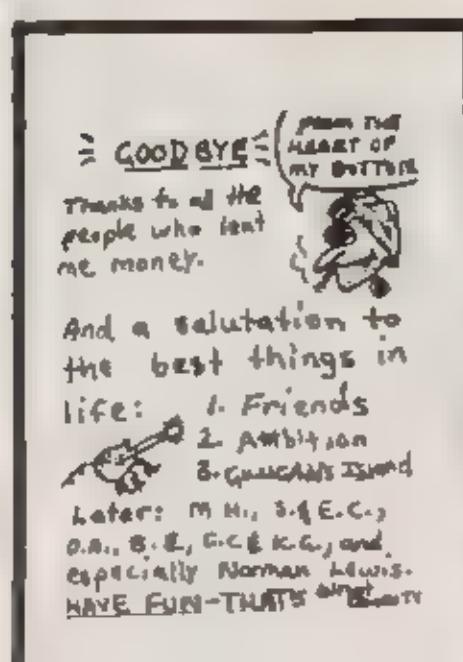 GOODBYE
FROM THE
HEART OF
MY BOTTOM
Thanks to all the
people who lent
me money.
And a salutation to
the best things in
life: 1. Friends
2. Ambition
3. GILLIGAN'S ISLAND
Later: M H., S. & E.C.,
D.A., B.E., G.C & K.G., and
especially Norman Lewis.
HAVE FUN-THAT'S what